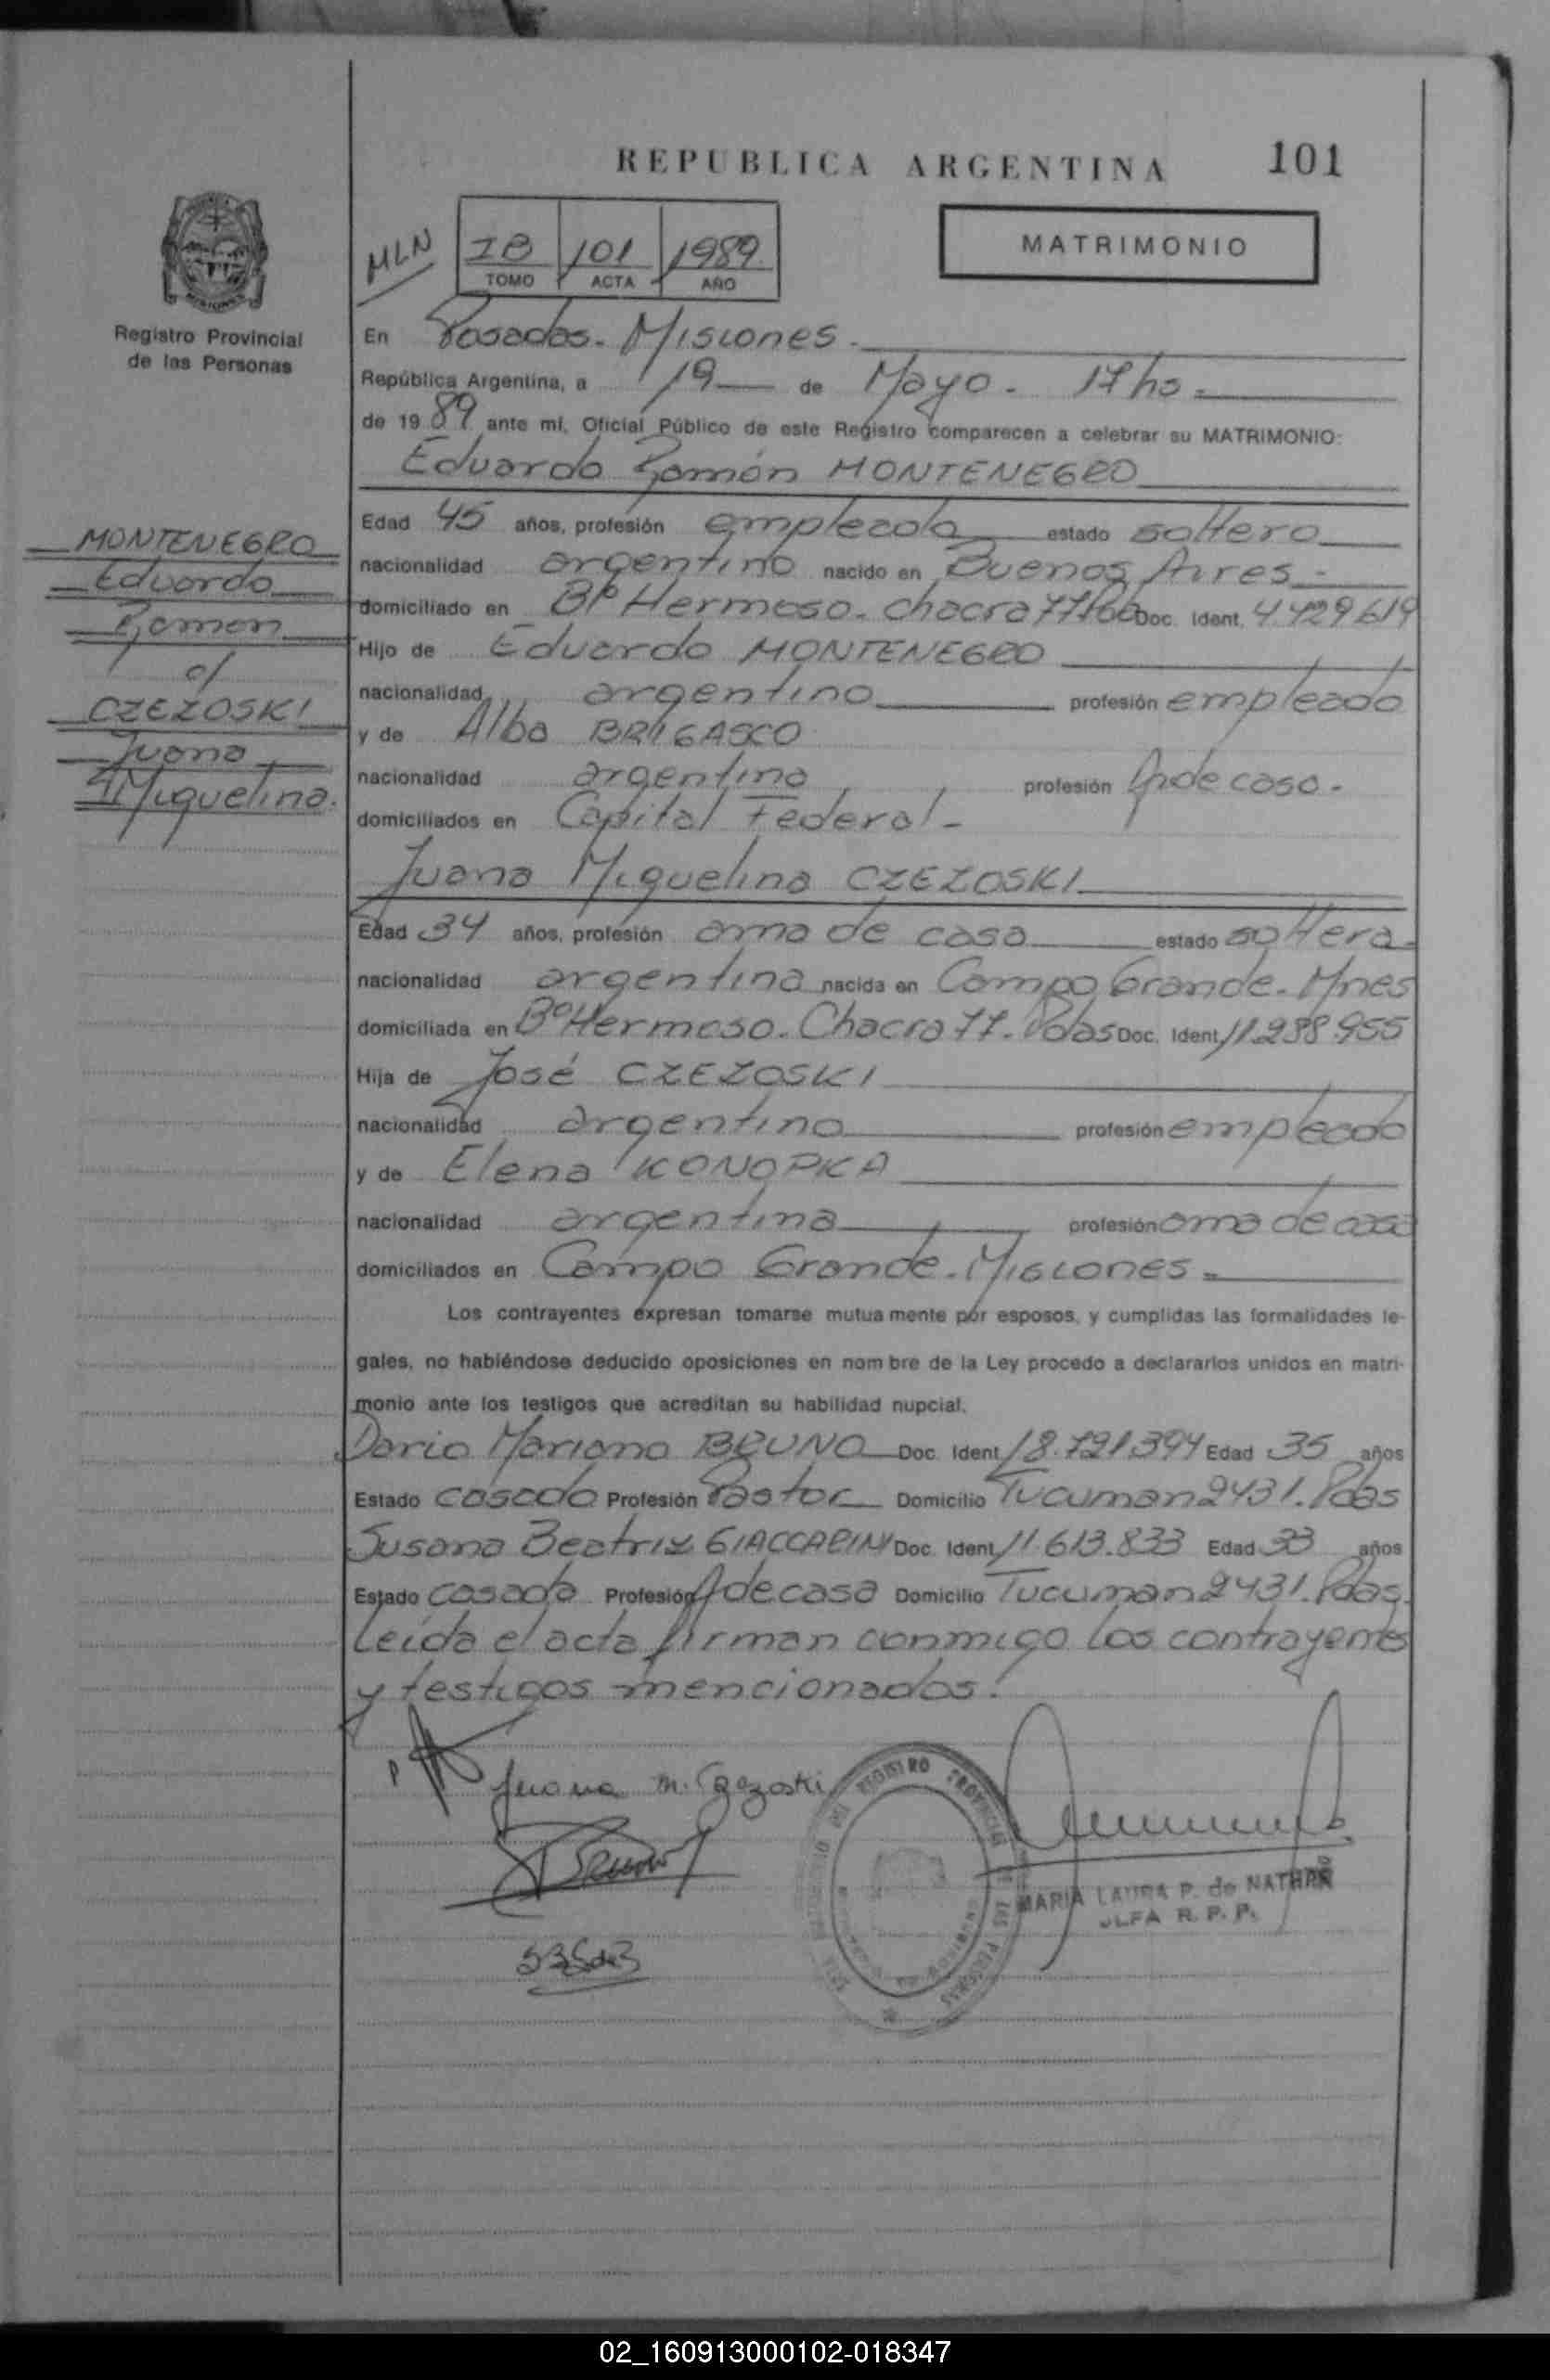 REPUBLICA ARGENTINA 101
MLN
IB 101 1989
TOMO ACTA AÑO
MATRIMONIO
Registro Provincial
de las Personas
En Posadas. Misiones.
República Argentina, a 19 de Mayo. 17 hs.
de 19 89 ante mi, Oficial Público de este Registro comparecen a celebrar su MATRIMONIO:
Eduardo Ramón MONTENEGRO
Edad 45 años, profesión empleado estado soltero
nacionalidad argentino nacido en Buenos Aires.
domiciliado en Bº Hermoso. Chacra 77 Doc. Ident. 4.429619
Hijo de Eduardo MONTENEGRO
nacionalidad argentino profesión empleado
y de Alba
nacionalidad argentina profesión A de casa.
domiciliados en Capital Federal.
MONTENEGRO
Eduardo
Ramon
c/
CZEZOSKI
Juana
Miguelina.
Juana Miguelina CZEZOSKI
Edad 34 años, profesión ama de casa estado soltera
nacionalidad argentina nacida en Campo Grande. Mnes
domiciliada en Bº Hermoso. Chacra 77. Pdas Doc. Ident. 11.238.955
Hija de José CZEZOSKI
nacionalidad argentino profesión empleado
y de Elena KONOPKA
nacionalidad argentina profesión ama de casa
domiciliados en Campo Grande. Misiones.
Los contrayentes expresan tomarse mutua mente por esposos, y cumplidas las formalidades le-
gales, no habiéndose deducido oposiciones en nom bre de la Ley procedo a declararlos unidos en matri-
monio ante los testigos que acreditan su habilidad nupcial.
Dario Mariano BRUNO Doc. Ident 18.721.394 Edad 35 años
Estado casado Profesión Pastor Domicilio Tucuman 2431. Pdas
Susana Beatriz GIACCARINI Doc. Ident 11.613.833 Edad 33 años
Estado casada Profesión A de casa Domicilio Tucuman 2431. Pdas.
Leída el acta firman conmigo los contrayentes
y testigos mencionados.
Juana M. Czezoski
REGISTRO PROVINCIAL DE LAS PERSONAS
MARIA LAURA P. de NATHAN
R. P. P.
02_160913000102-018347